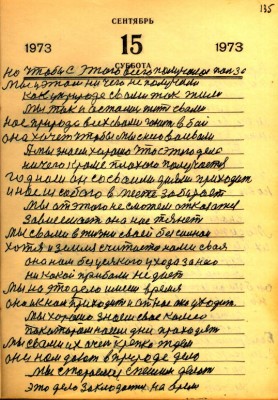 135
СЕНТЯБРЬ
1973 15 1973
СУББОТА
но чтобы с этого всего получилось
Мы в этом ничего не получили
как у природе свали так жили
Мы так и остались тут с вами
нас природа в них вами гонит в бой
она хочет чтобы мы с нею воевали
А мы знаем хорошо что это дело
ничего кроме плохого получается
годами он со своими днями приходит
и нас с собою в тоже забирает
Мы от этого не сможем отказаться
зависимость она нас тянет
Мы с вами в жизни своей бессильное
хотя и земля считается нами своя
она нам без всякого ухода за нею
никакой прибыли не дает
Мы на это дело имеем время
она к нам приходит и от нас же уходит
Мы хорошо знаем свое колесо
по которому наши дни проходят
Мы с вами их очень крепко ждем
они нам дают в природе дело
Мы стараемся спешим делать
это дело закладать на время